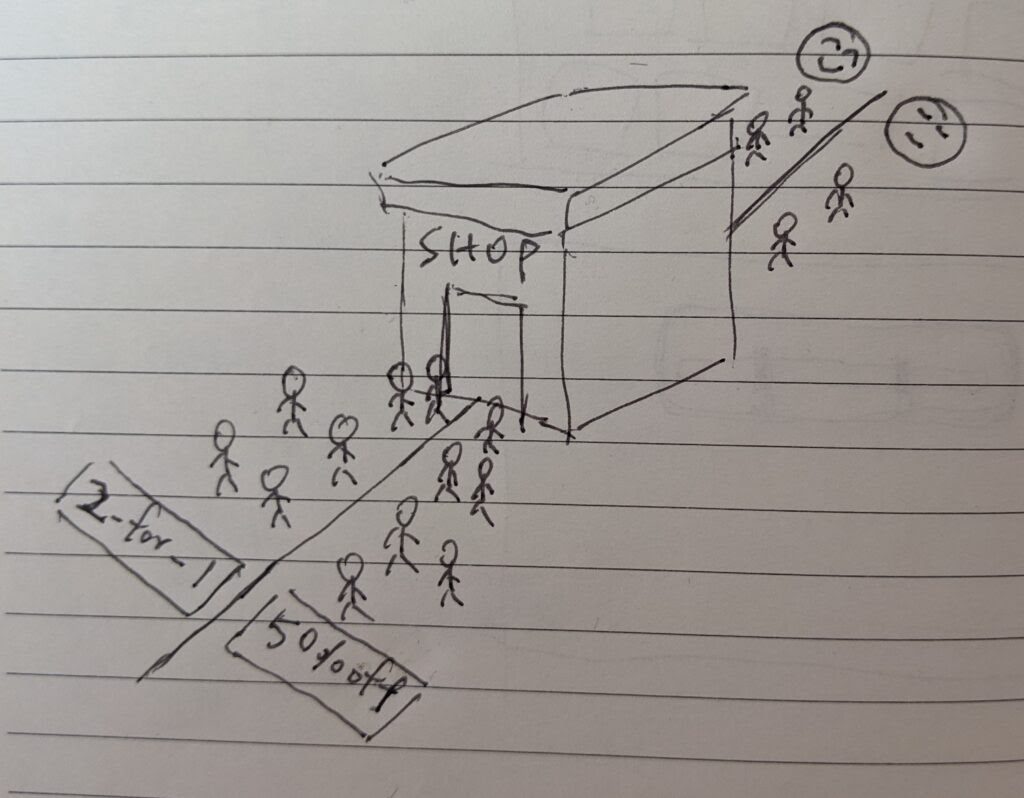 SHOP
2-for-1
50% off